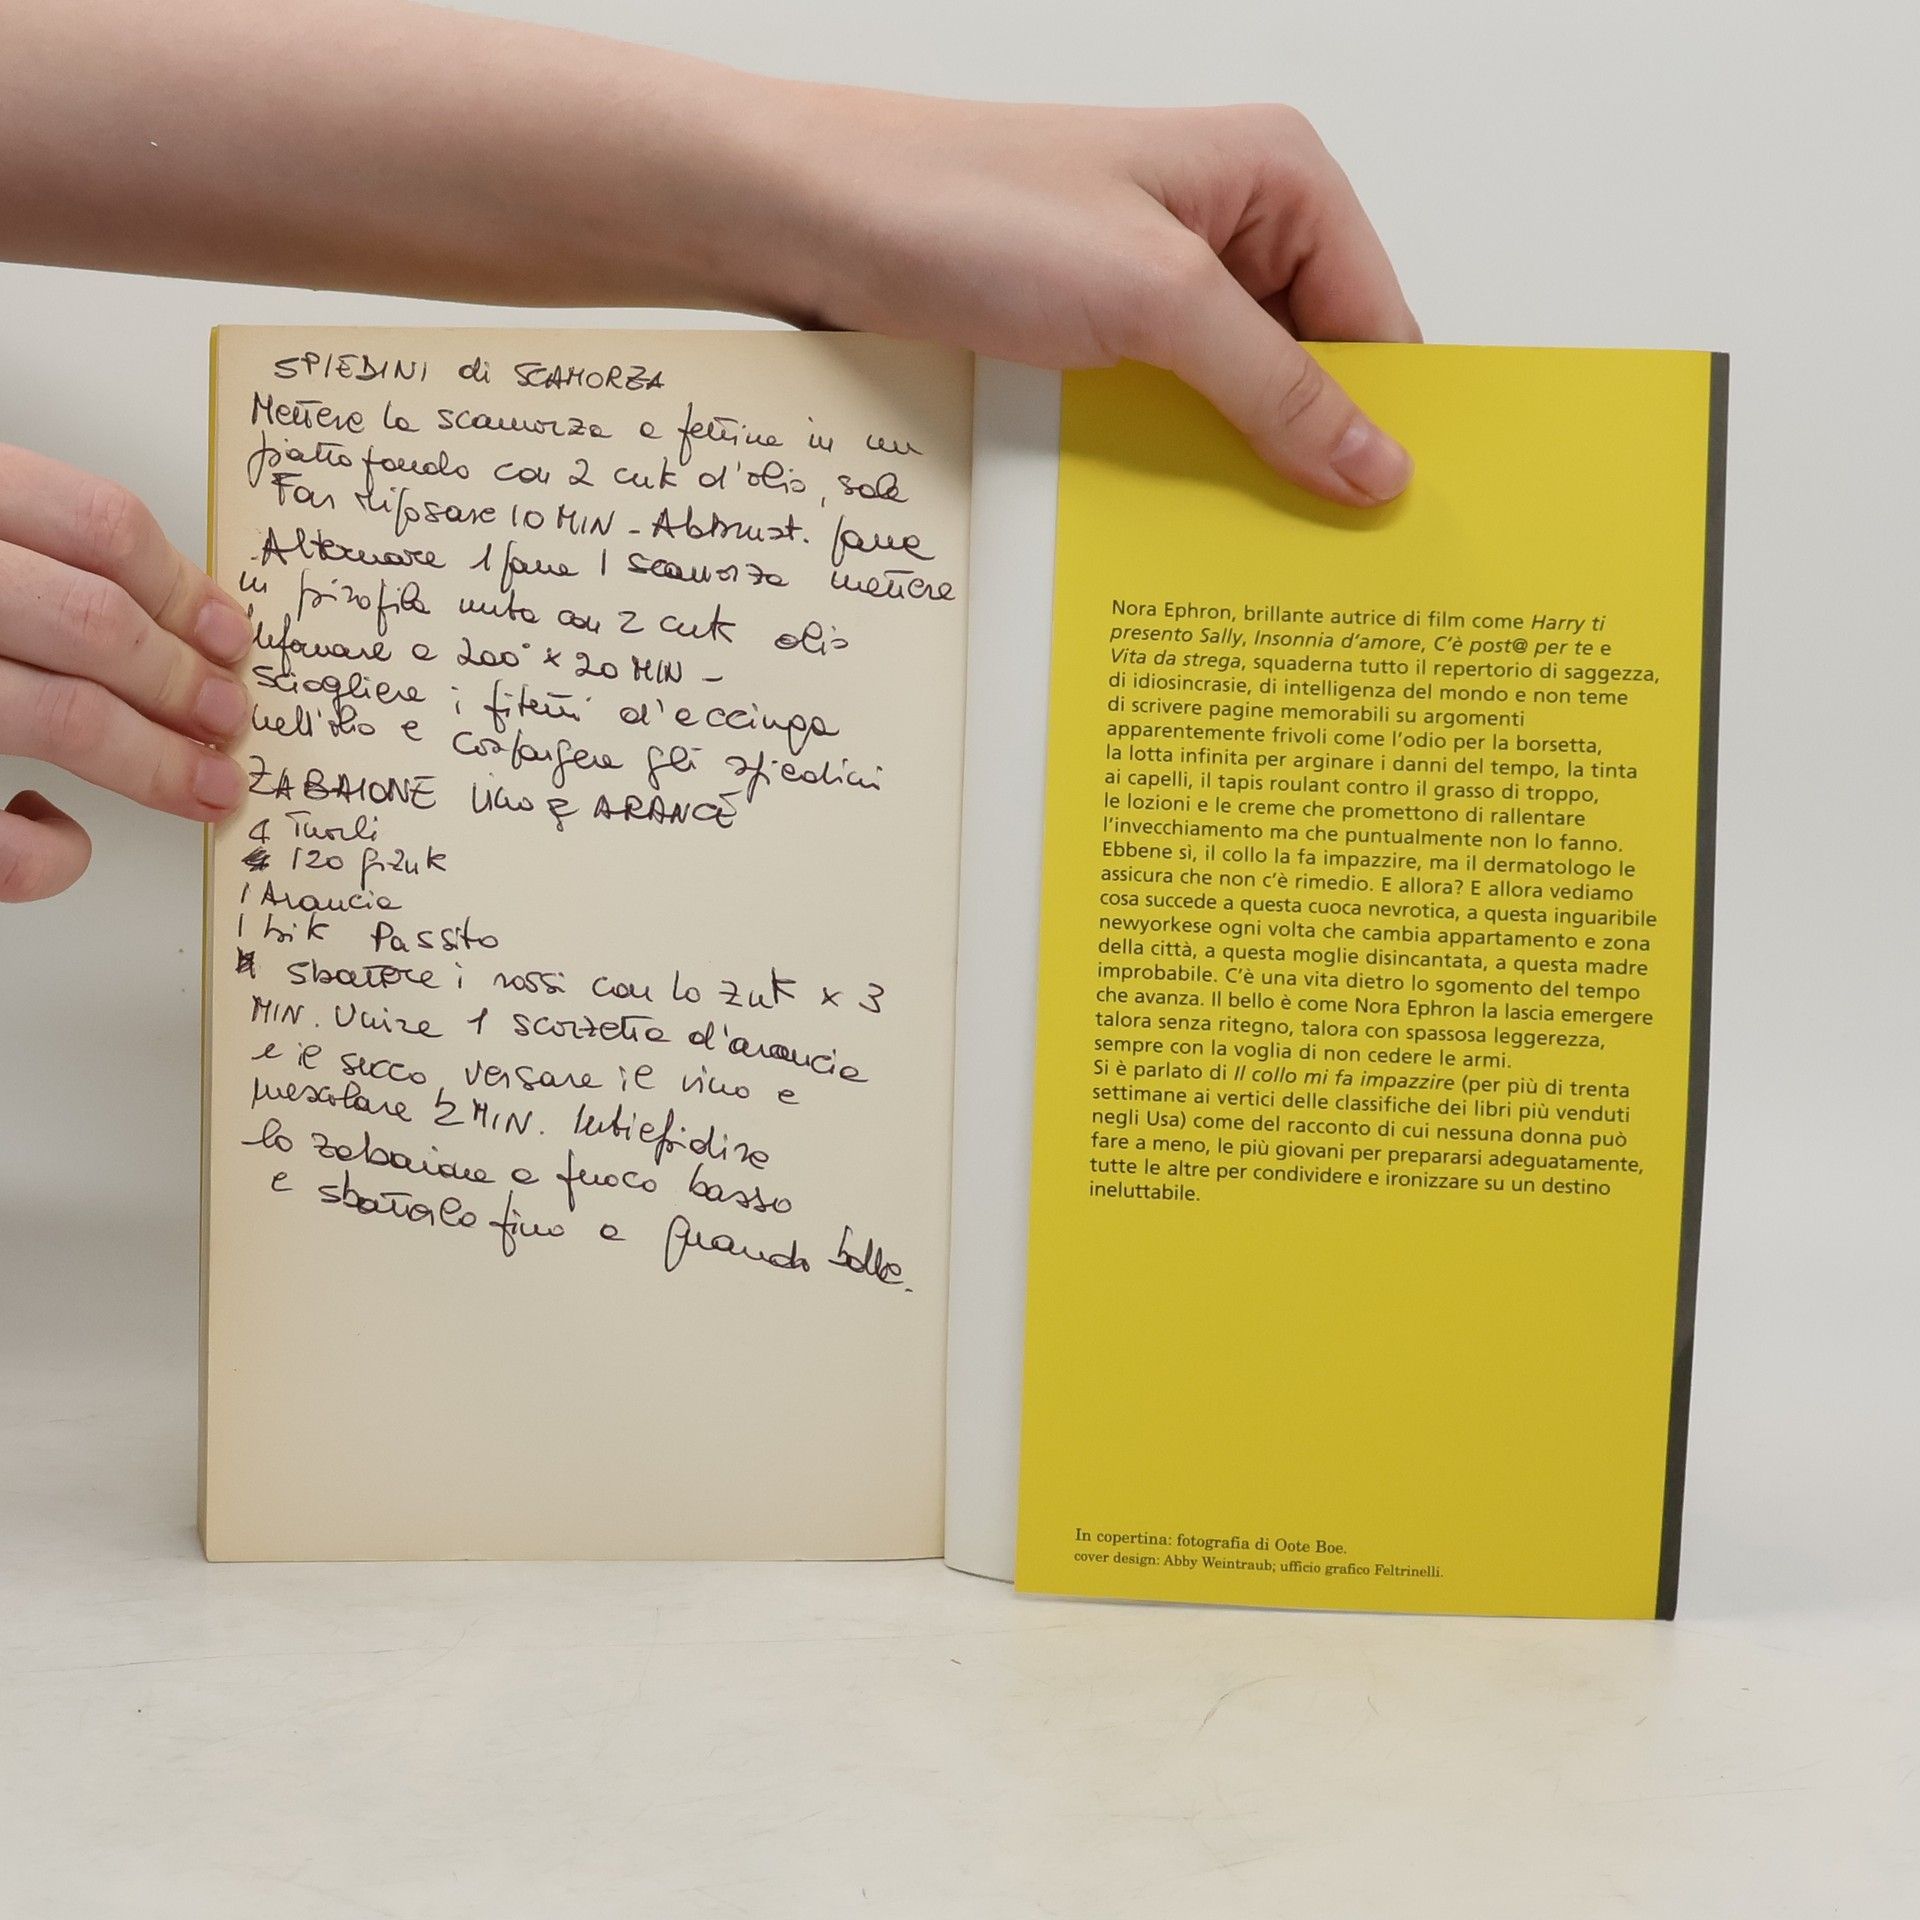 SPIEDINI di SCAMORZA
Mettere la scamorza a fettine in un
piatto fondo con 2 cuk d'olio, sale
Far riposare 10 MIN - Abbrust. pane
Alternare 1 pane 1 scamorza mettere
in pirofila unta con 2 cuk olio
Infornare a 200° x 20 MIN -
Sciogliere i filetti d'acciuga
nell'olio e cospargere gli spiedini
ZABAIONE vino & ARANCE
4 Tuorli
120 gr zuk
1 Arancia
1 bik Passito
sbattere i rossi con lo zuk x 3
MIN. Unire 1 scorzetta d'arancia
e il succo, versare il vino e
mescolare 2 MIN. Intiepidire
lo zabaione a fuoco basso
e sbatterlo fino a quando bolle.
Nora Ephron, brillante autrice di film come Harry ti
presento Sally, Insonnia d'amore, C'è post@ per te e
Vita da strega, squaderna tutto il repertorio di saggezza,
di idiosincrasie, di intelligenza del mondo e non teme
di scrivere pagine memorabili su argomenti
apparentemente frivoli come l'odio per la borsetta,
la lotta infinita per arginare i danni del tempo, la tinta
ai capelli, il tapis roulant contro il grasso di troppo,
le lozioni e le creme che promettono di rallentare
l'invecchiamento ma che puntualmente non lo fanno.
Ebbene sì, il collo la fa impazzire, ma il dermatologo le
assicura che non c'è rimedio. E allora? E allora vediamo
cosa succede a questa cuoca nevrotica, a questa inguaribile
newyorkese ogni volta che cambia appartamento e zona
della città, a questa moglie disincantata, a questa madre
improbabile. C'è una vita dietro lo sgomento del tempo
che avanza. Il bello è come Nora Ephron la lascia emergere
talora senza ritegno, talora con spassosa leggerezza,
sempre con la voglia di non cedere le armi.
Si è parlato di Il collo mi fa impazzire (per più di trenta
settimane ai vertici delle classifiche dei libri più venduti
negli Usa) come del racconto di cui nessuna donna può
fare a meno, le più giovani per prepararsi adeguatamente,
tutte le altre per condividere e ironizzare su un destino
ineluttabile.
In copertina: fotografia di Oote Boe.
cover design: Abby Weintraub; ufficio grafico Feltrinelli.